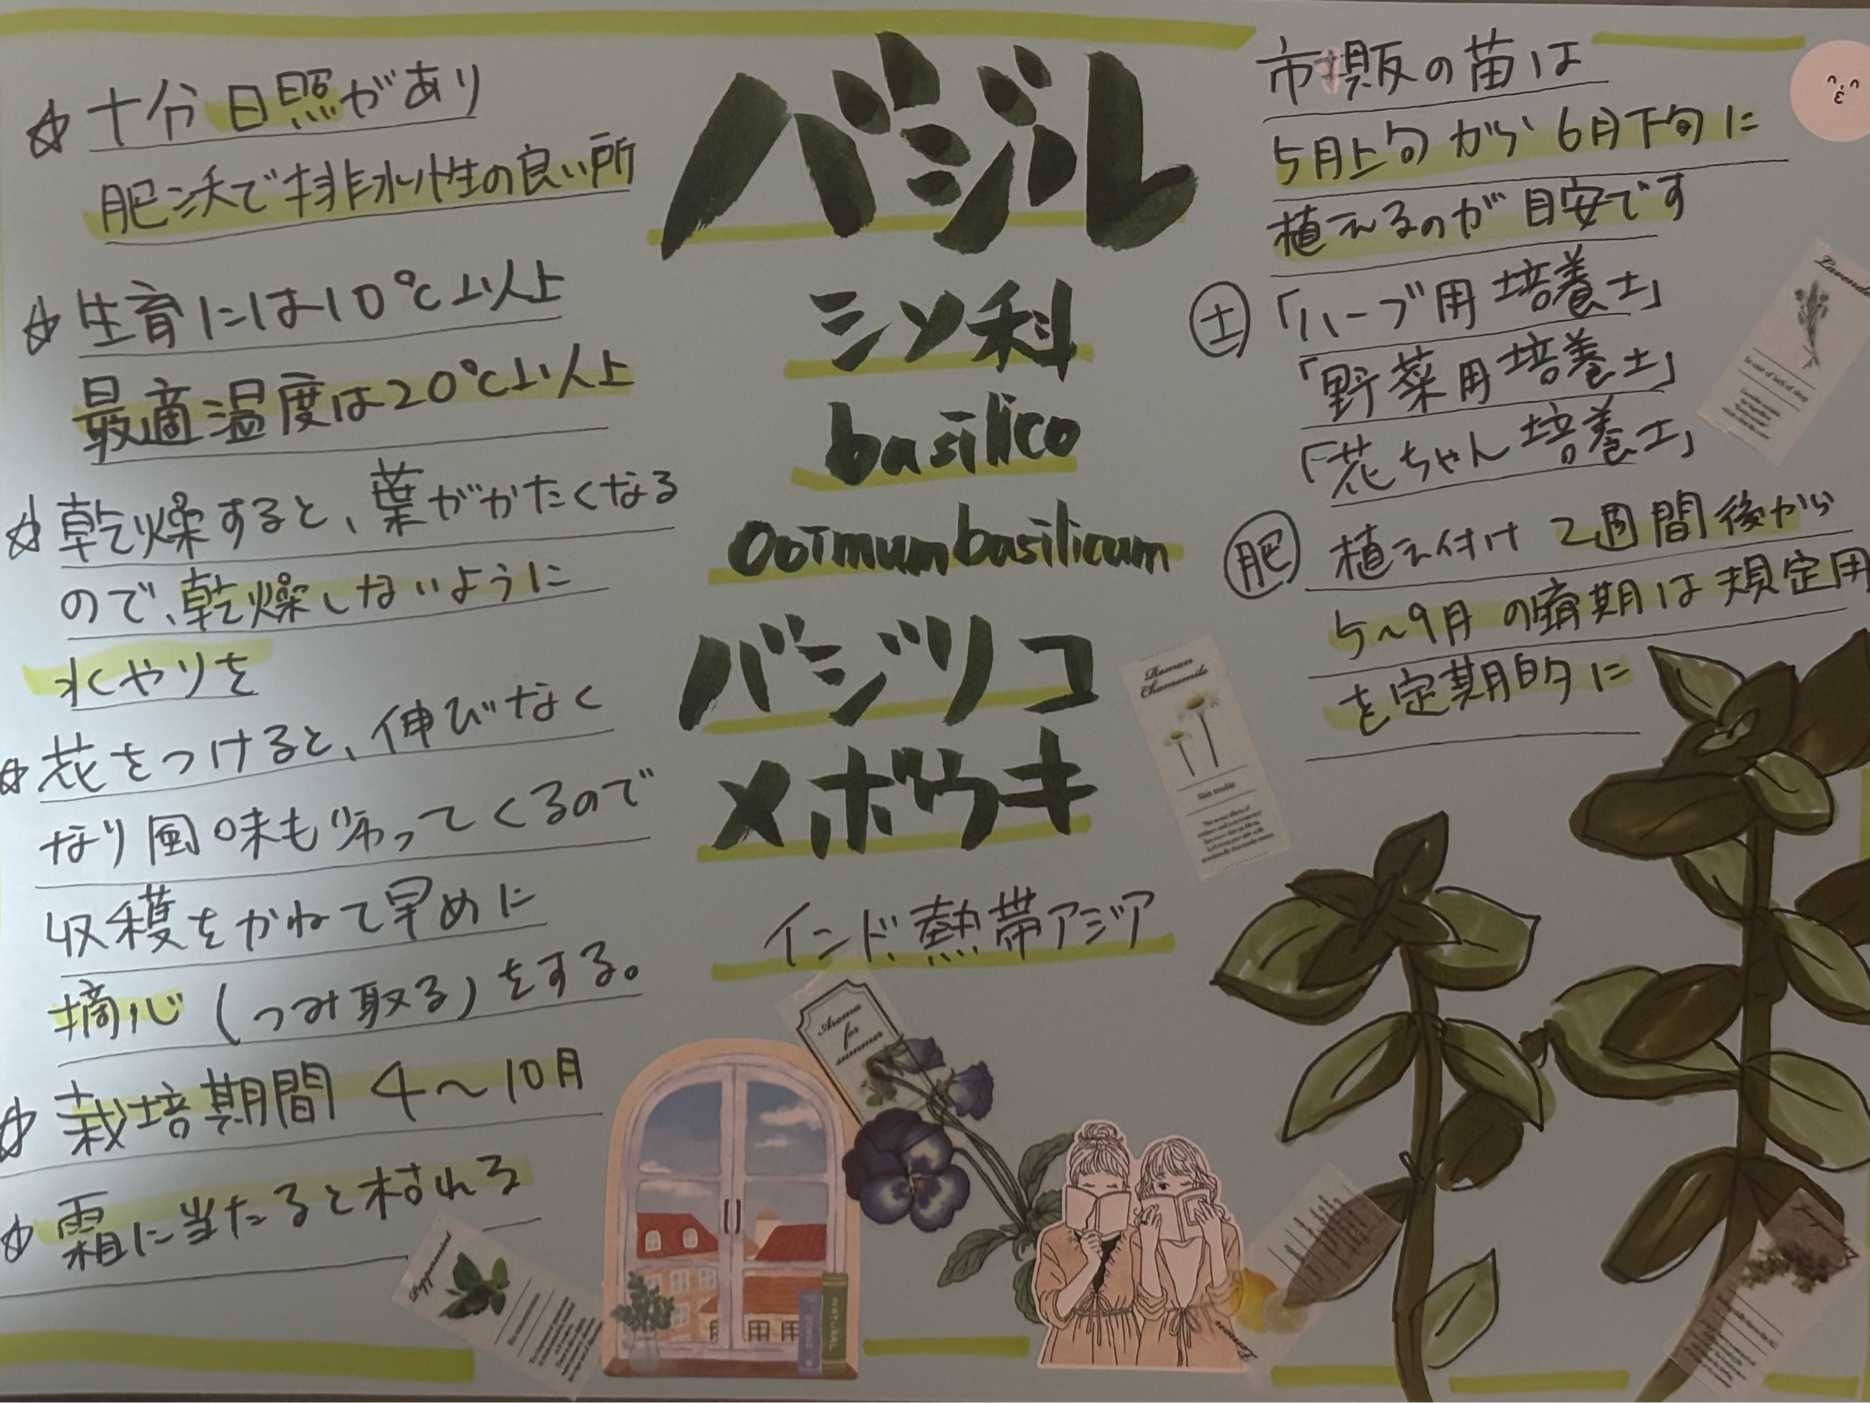 ☆ 十分日照があり
肥沃で排水性の良い所
☆ 生育には10℃以上
最適温度は20℃以上
☆ 乾燥すると、葉がかたくなる
ので、乾燥しないように
水やりを
☆ 花をつけると、伸びなく
なり風味も
ってくるので
収穫をかねて早めに
摘心(つみ取る)をする。
☆ 栽培期間 4〜10月
☆ 霜に当たると枯れる
バジル
シソ科
basilico
Ooimum basilicum
バジリコ
メボウキ
インド、熱帯アジア
市販の苗は
5月上旬から6月下旬に
植えるのが目安です
土 「ハーブ用培養土」
「野菜用培養土」
「花ちゃん培養土」
肥 植え付け2週間後から
5〜9月の
期は規定用
を定期的に
Roman
Chamomile
Aroma
for
summer
Peppermint
NATURAL